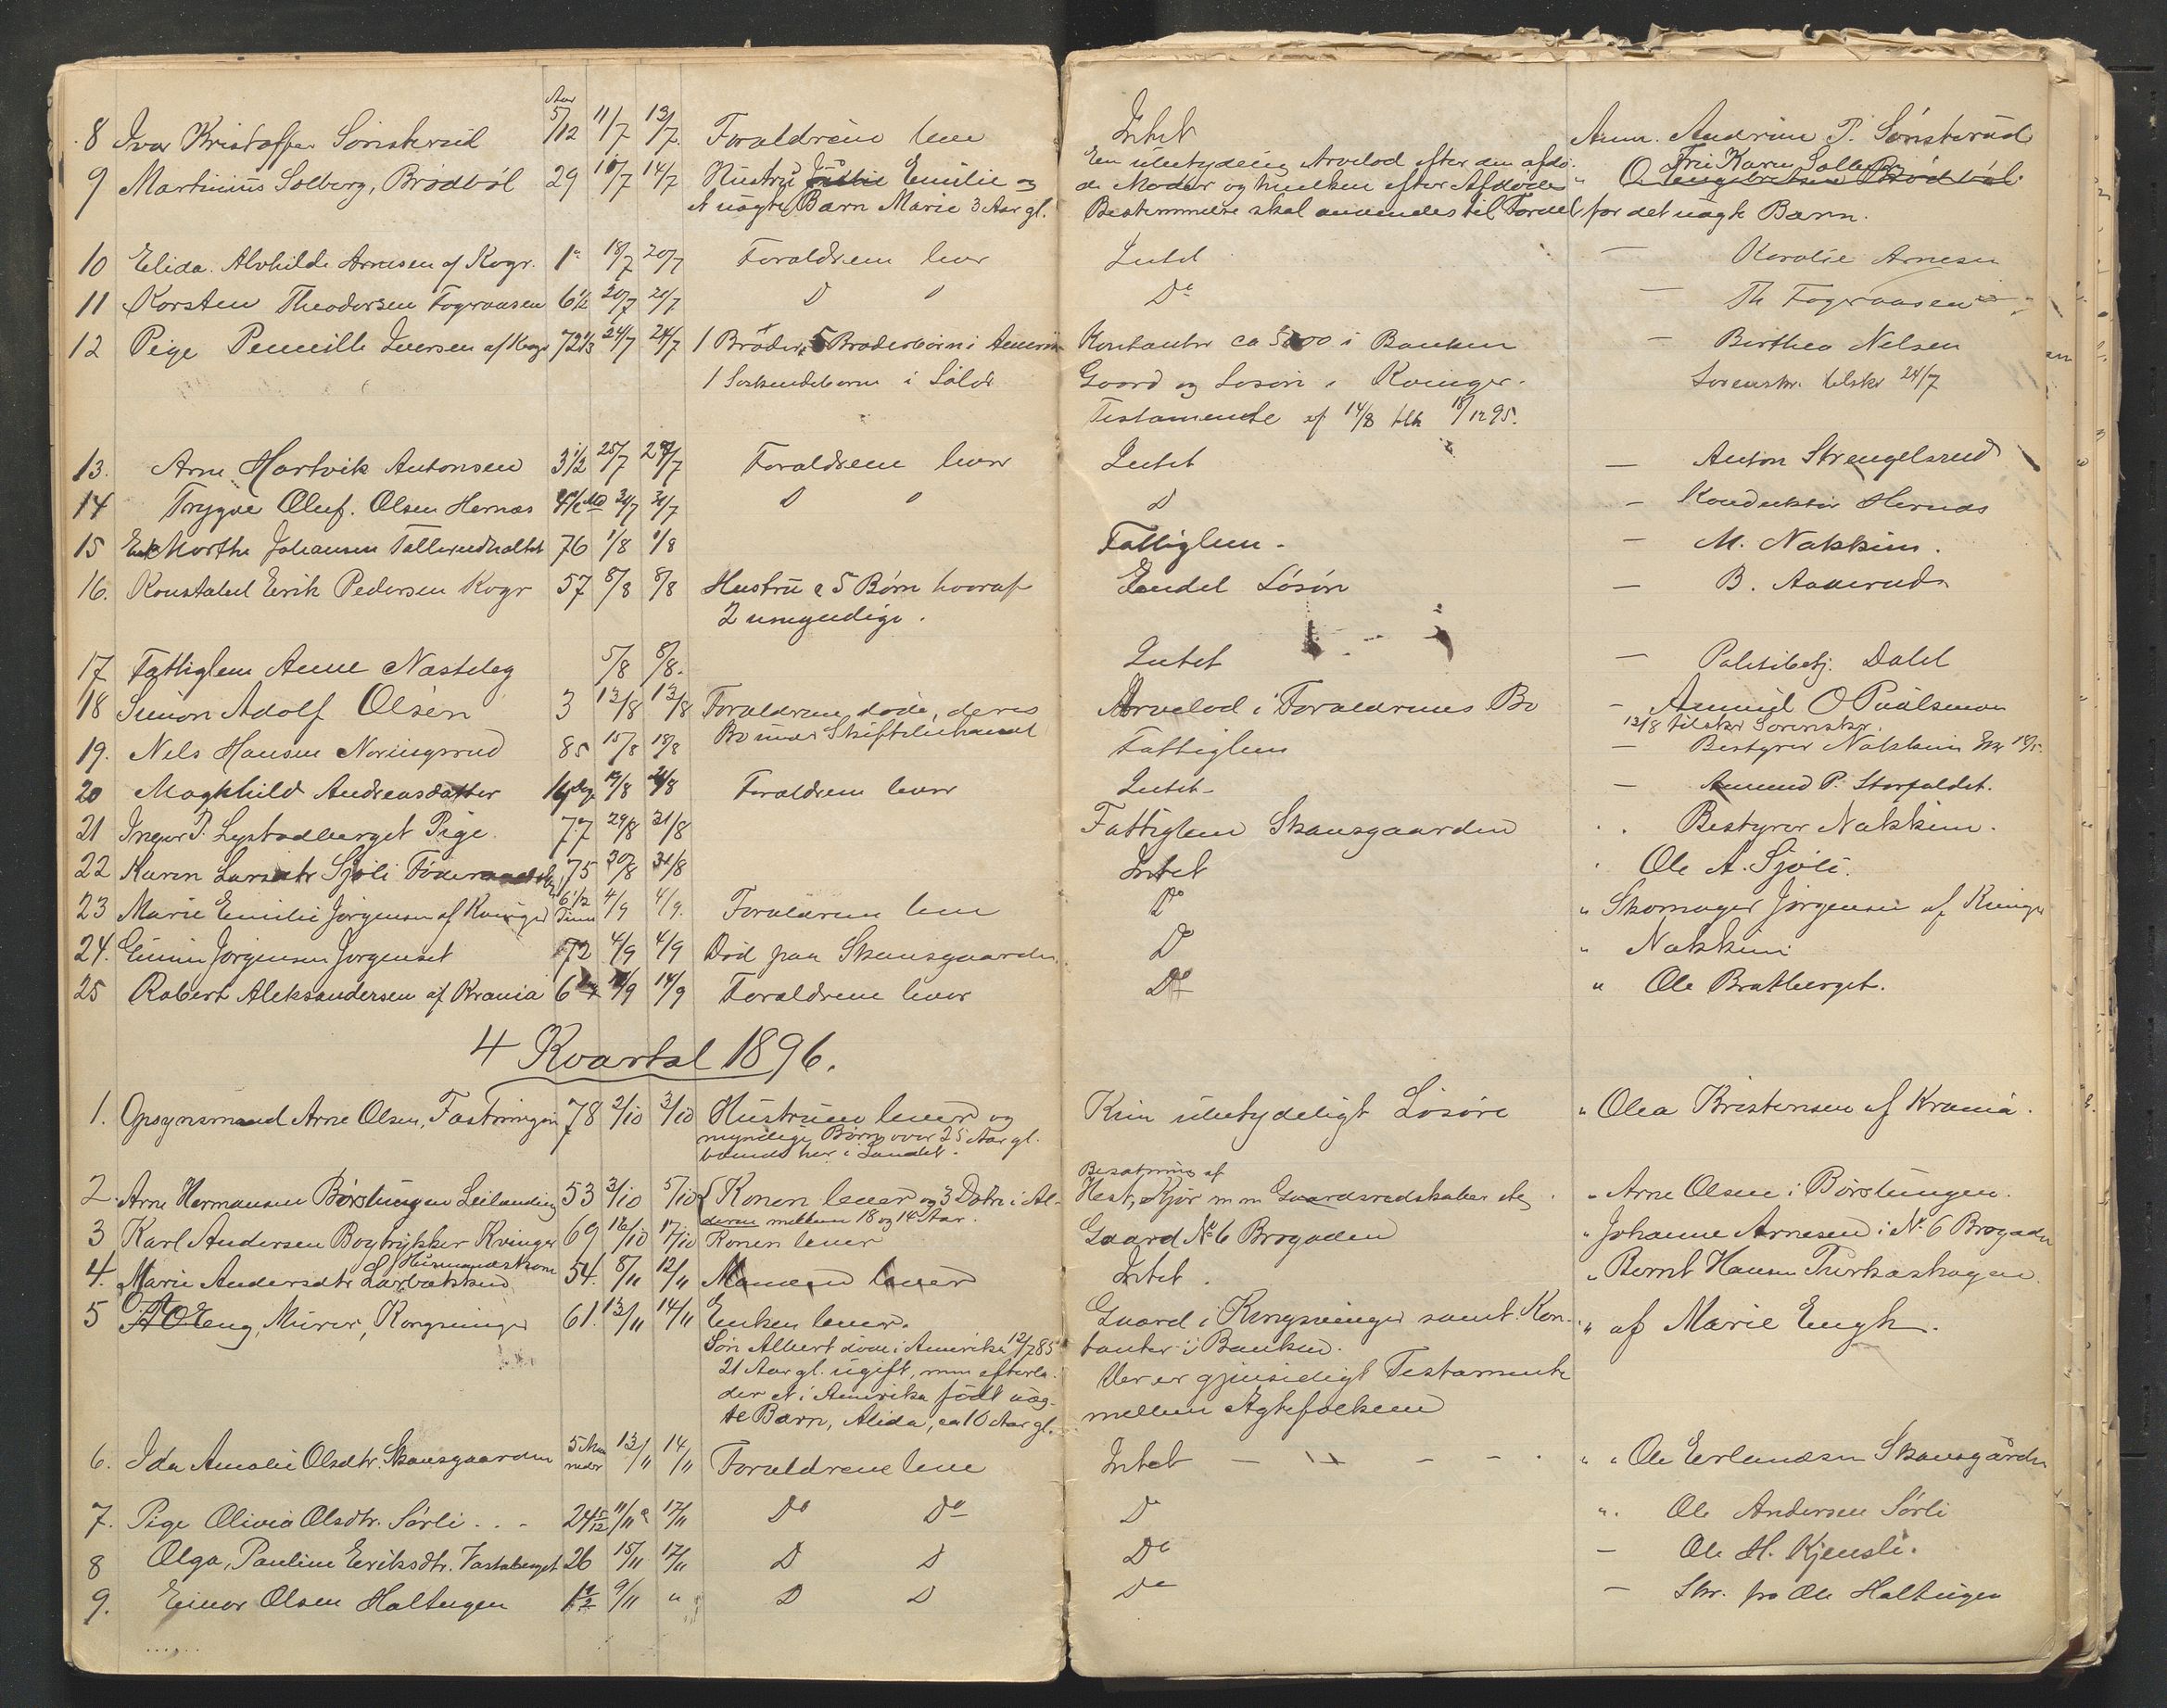 Aar
8 Ivar Kristoffer Sønsterud 5/12 11/7 13/7 Forældrene leve Intet Anm. Andrine P. Sønsterud
9 Martinius Solberg, Brødbøl 29 10/7 14/7 Hustru Emilie og En ubetydelig Arvelod efter den afdø- " Fru Karen Solberg
et uægte Barn Marie 3 Aar gl. de Moder og hvilken efter Afdødes
Bestemmelse skal anvendes til Fordel for det uægte Barn.
10 Elida Alvhilde Arnesen af Kogr. 1 18/7 20/7 Forældrene lever Intet — Karolie Arnesen
11 Torsten Theodorsen Fograasen 6 1/2 20/7 21/7 D " Do — Th Fograasen
12 Pige Pernille Iversen af Kogr 72 1/3 24/7 24/7 1 Broder, 5 Broderbörn i Amerika Kontanter ca 5000 i Banken — Berthea Nelsen
1 Søskendebarn i Solør Gaard og Løsøre i Kvinger. Sorenskr. tilskr 24/7
Testamente af 14/8 tlh 18/12 95.
13. Arne Hartvik Antonsen 3 1/2 25/7 28/7 Forældrene lever Intet — Anton Strengelsrud
14 Trygve Oluf Olsen Hernæs 4 1/2 Md 31/7 31/7 D " D — Konduktør Hernæs
15 Enke Marthe Johansen Tallerudhaltet 76 1/8 1/8 Fattiglem. — M. Nakkim.
16. Konstabel Erik Pedersen Kogr 57 8/8 8/8 Hustru & 5 Børn hvoraf Endel Løsøre — B. Aamerud
2 umyndige.
17 Fattiglem Anne Næsteby 5/8 8/8. Intet — Politibetj. Dahl
18 Simon Adolf Olsen 3 12/8 13/8 Forældrene døde, deres Arvelod i Forældrenes Bo — Amund O Paulsmoen
Bo under Skiftebehandl 13/8 tilskr Sorenskr.
19. Nels Hansen Noringsrud 85 15/8 18/8 Fattiglem — Bestyrer Nakkim
20 Maghild Andreasdatter 14 Dg. 19/8 21/8 Forældrene lever Intet — Amund P. Storfaldet.
21 Inger P. Lystadberget Pige. 77 29/8 31/8 Fattiglem Skansgaarden . . Bestyrer Nakkim.
22 Karen Larsdtr Sjøli 75 30/8 31/8 Intet . Ole A. Sjøli.
23 Marie Emilie Jørgensen af Kvinger 6 1/2 Time 4/9 4/9. Forældrene leve Do " Skomager Jørgensen af Kvinger
24. Einun Jørgensen Jørgenset 72 4/9 4/9 Død paa Skansgaarden D " Nakkim
25 Robert Aleksandersen af Krania 6 14/9 14/9 Forældrene lever Do " Ole Bratberget.
4 Kvartal 1896.
1. Opsynsmand Arne Olsen, Fæstningen 78 2/10 3/10 Hustruen lever og Kun ubetydeligt Løsøre " Olea Kristensen af Krania.
myndige Børn over 25 Aar gl.
boende her i Landet.
2. Arne Hermansen Børstingen Leilænding 53 3/10 5/10 Konen lever og 3 Døtre i Al- Besætning af " Arne Olsen i Börstingen.
deren mellem 18 og 14 Aar. Hest, Kjør m m Gaardsredskaber etc
3 Karl Andersen Bogtrykker Kvinger 69 16/10 17/10 Konen lever Gaard No 6 Brogaden " Johanne Arnesen i No 6 Brogaden
4. Marie Andersdtr Husmandskone 54. 8/11 12/11 Manden lever Intet. " Bernt Hansen
5 O. A. Eng, Murer, Kongsvinger 61. 13/11 14/11 Enken lever. Gaard i Kongsvinger samt Kon- " af Marie Engh.
Søn Albert døde i Amerika 12/7 85 tanter i Banken.
21 Aar gl. ugift, men efterla- Der er gjensidigt Testamente
der et i Amerika født uæg- mellem Ægtefolkene
te Barn, Alida, ca 10 Aar gl.
6. Ida Amalie Olsdtr. Skansgaarden 5 Maaneder 13/11 14/11 Forældrene leve Intet — — — " " Ole Erlandsen Skansgården
7. Pige Olivia Olsdtr. Sørli . . - 24 5/12 11/11 17/11 Do Do D ". Ole Andersen Sørli
8 Olga, Pauline Eriksdtr. Vastaberget 26 15/11 17/11 D D Do — Ole H. Kjensli.
9. Einar Olsen Haltugen 1 1/2 9/11 " D D Do — Skr. fra Ole Haltugen